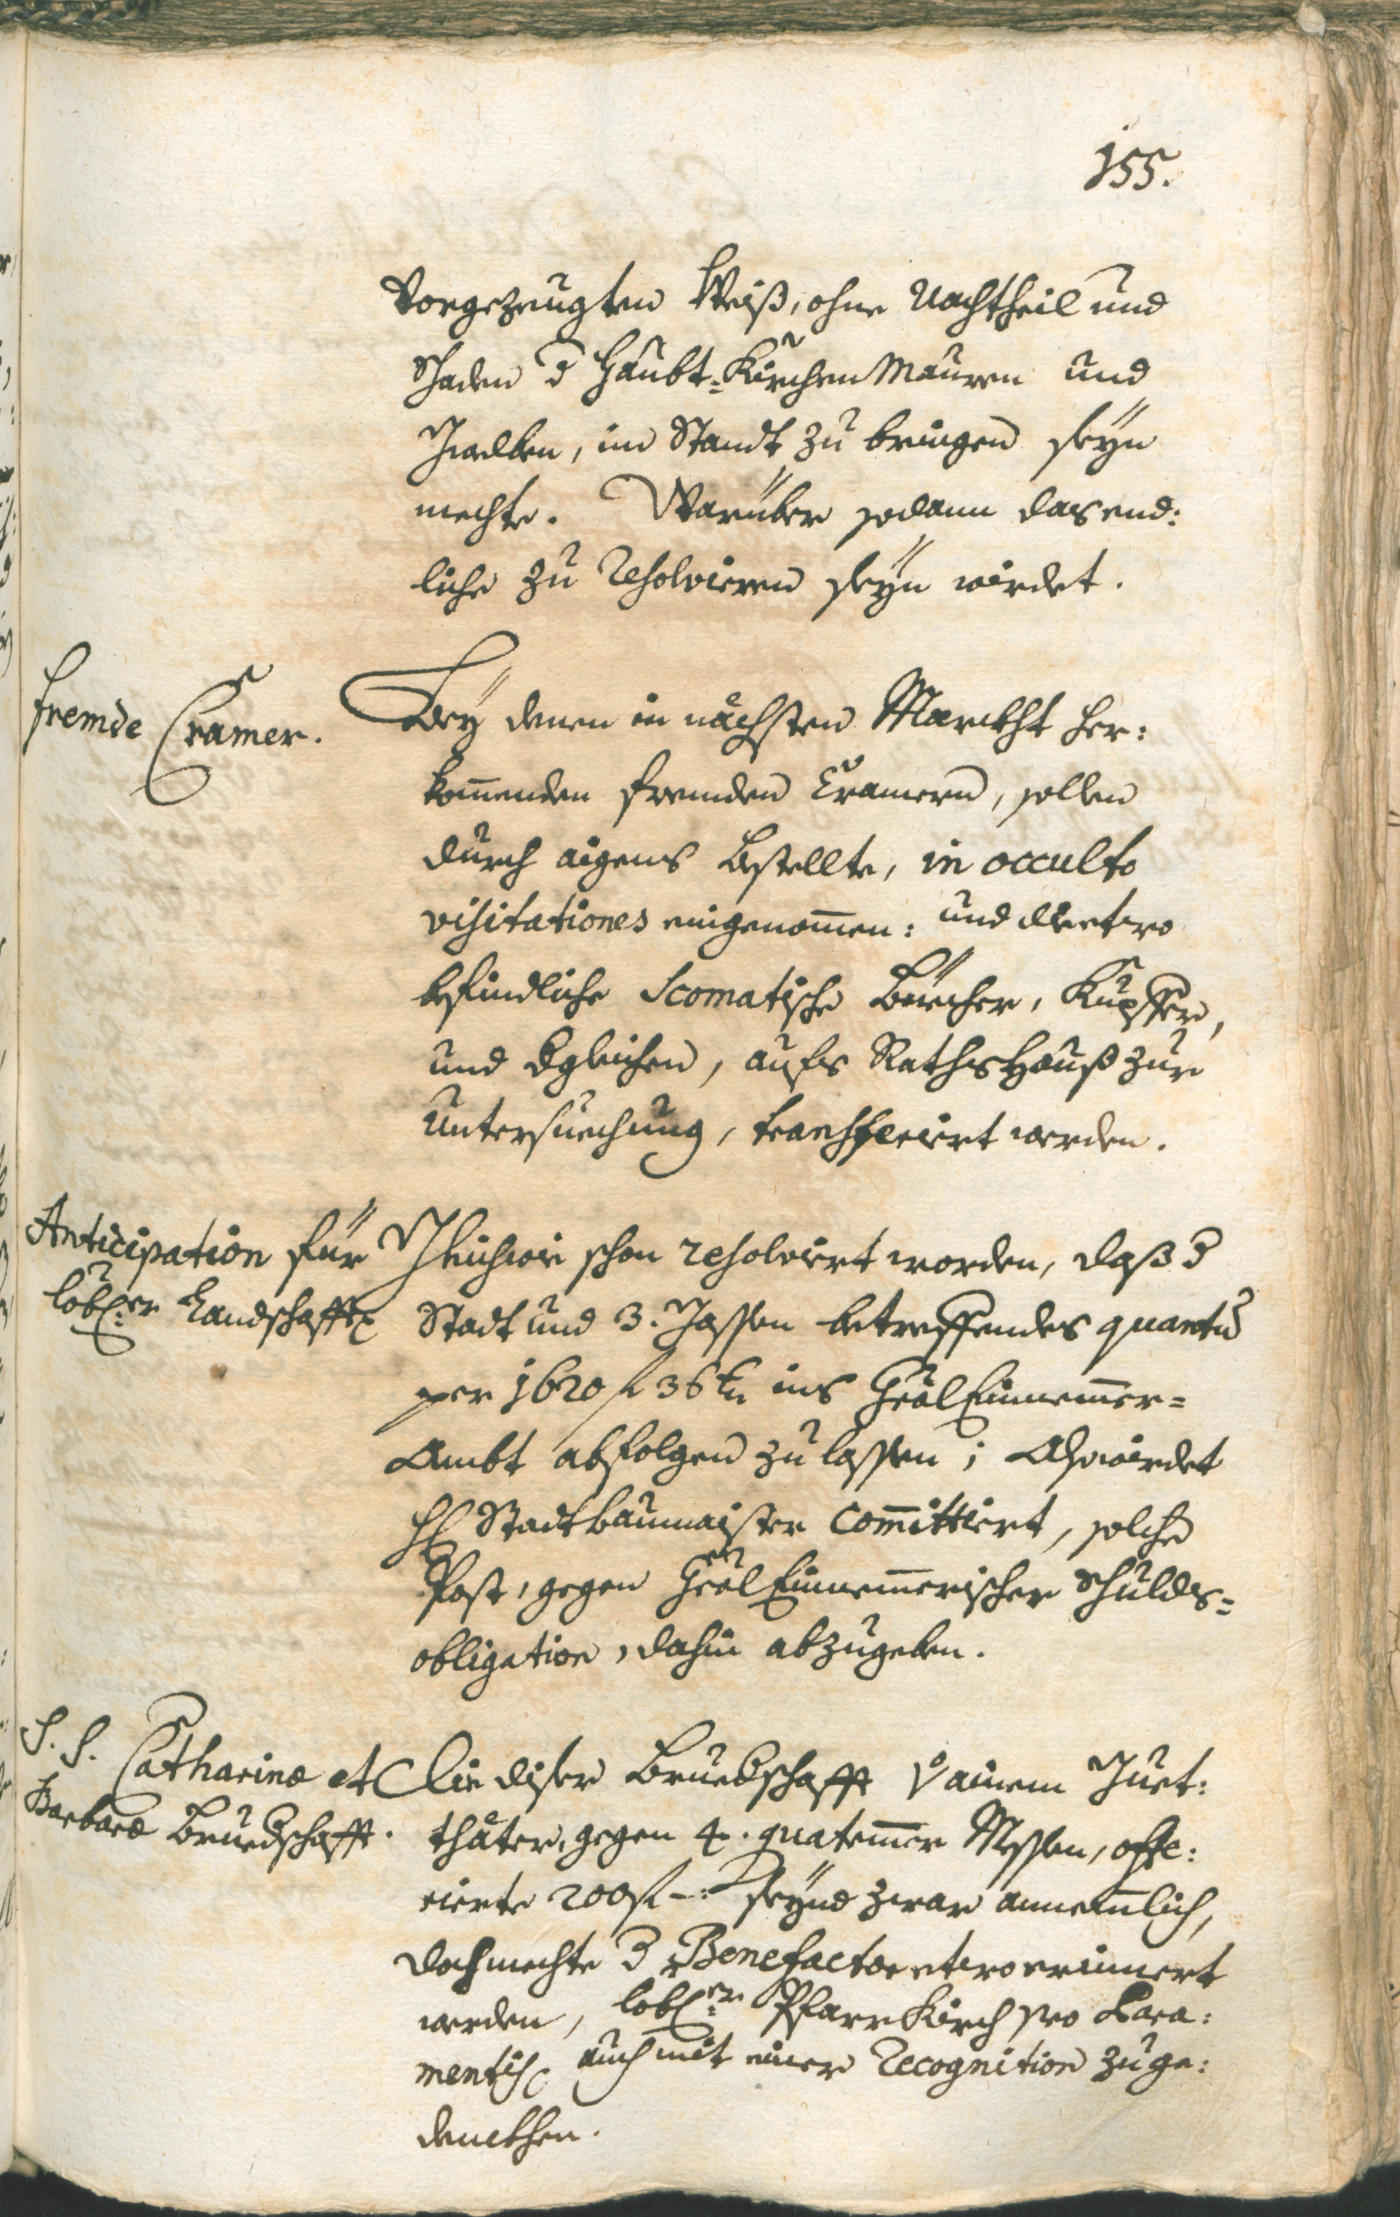 155.
vorgezeugten Weiß, ohne Nachtheil und
Schaden d Haubt-Kirchen Mauren und
Gwelben, im Standt zu bringen seyn
mechte. Warüber sodann das end:
liche zu resolvieren seyn wirdet.
fremde Cramer.
Bey denen in nächsten Marckht her:
komenden frembden Cramern, sollen
durch aigens bestellte, in occulto
visitationes eingenomen: und
befindliche Scomatische Buecher, Kupffer,
und dgleichen, aufs Rathshauß zur
Untersuechung, transferiert werden.
Anticipation für
lobl:er Landschafft
Gleichwie schon resolviert worden, daß d
Stadt und 3. Gassen betreffendes quantu
per 1620 f 36 kr ins Gräl Einnemer=
Ambt abfolgen zu lassen; Als wirdet
H Stadtbaumaister committiert, solche
Post, gegen Gräl Einnemerischer Schulds=
obligation, dahin abzugeben.
S. S. Catharinæ et
Barbaræ Bruedschafft.
Die diser Bruedschafft v ainem Guet:
thäter, gegen 4. quatemer Messen, offe:
rierte 200 f -: seynd zwar annemlich,
doch mechte d Benefactor erinnert
werden, lobl:er Pfarr Kirch pro Para:
mentis, auch mit einer Recognition zu ge:
denckhen.